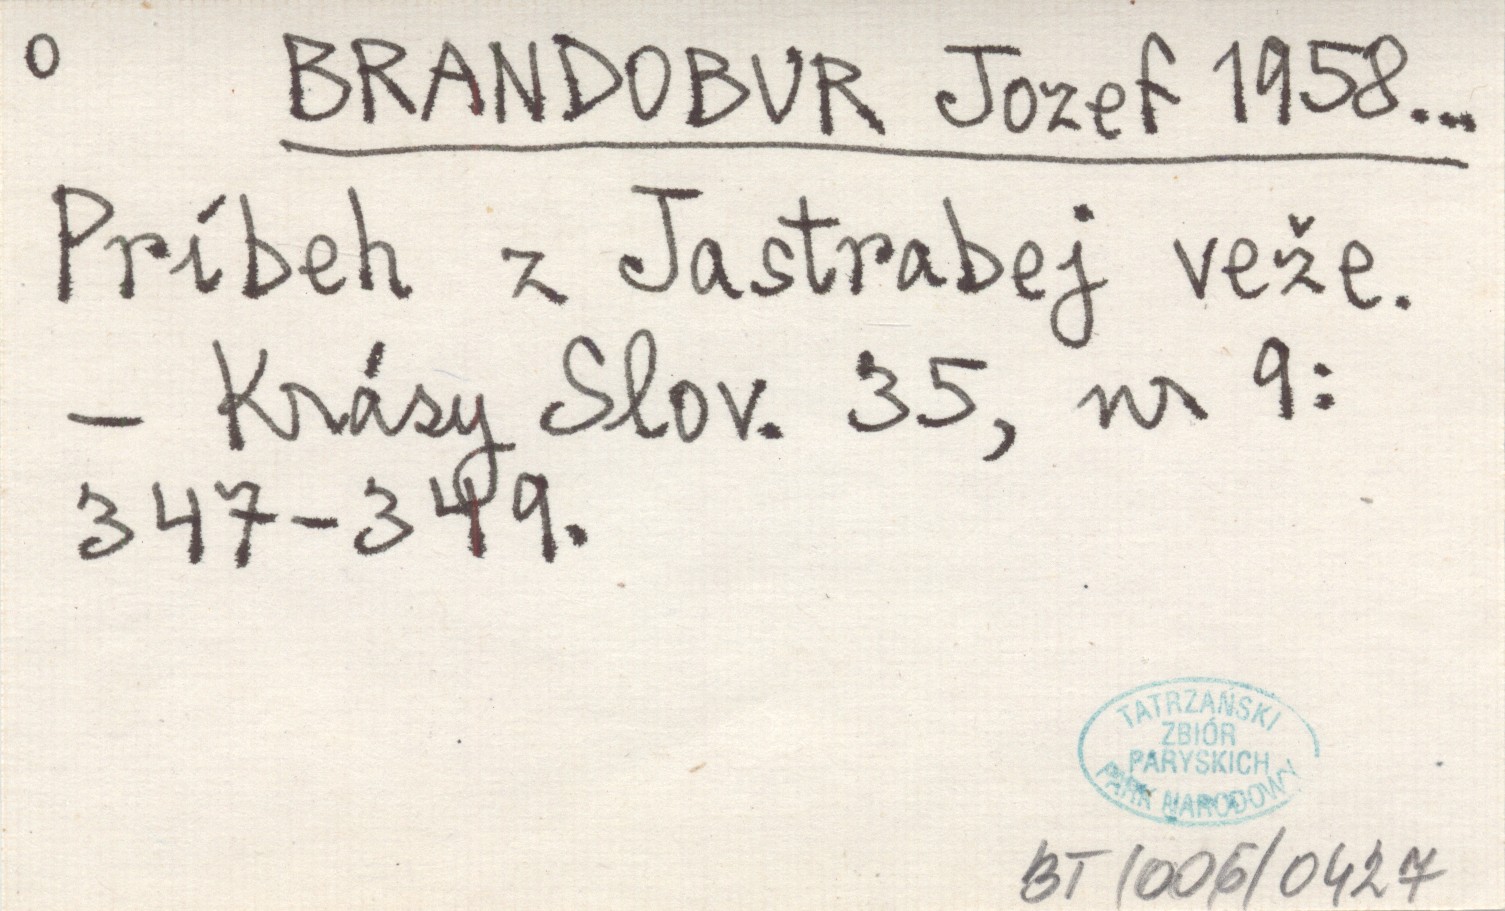 o BRANDOBUR Jozef 1958...
Príbeh z Jastrabej veže.
– Krásy Slov. 35, nr 9:
347–349.
TATRZAŃSKI
ZBIÓR
PARYSKICH
PARK NARODOWY
BT/006/0427